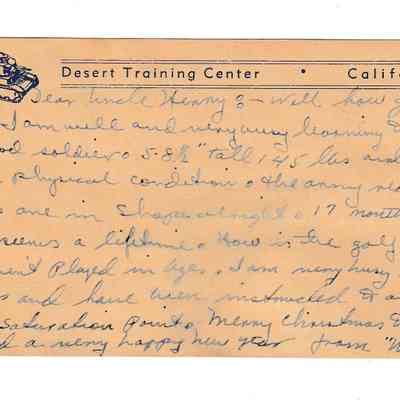 Desert Training Center • Calif
Dear Uncle Henry :- Well how
I am well and very busy learning
soldier. 5-8½" tall 145 lbs and
physical condition. The army
are in shape alright. 17 month
seems a lifetime. How is the golf
Played in ages. I am very busy
and have been instructed
Saturation Point. Merry Christmas &
a very happy new year from